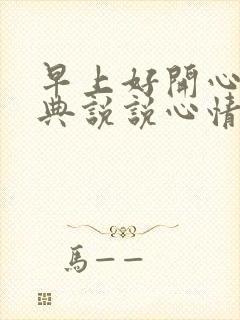 早上好開心
典說說心情
馬——